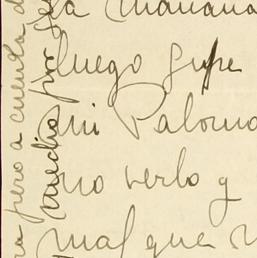 la mañana
luego supe
mi Paloma
no verlo y
mal que
pero a cuenta d
medio pro